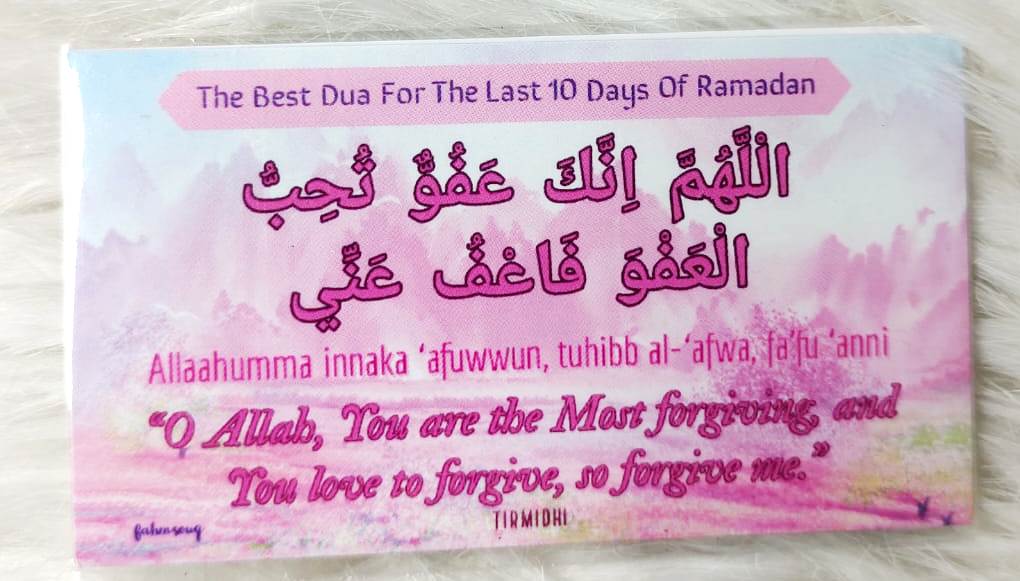 The Best Dua For The Last 10 Days Of Ramadan
اللَّهُمَّ إِنَّكَ عَفُوٌّ تُحِبُّ
الْعَفْوَ فَاعْفُ عَنِّي
Allaahumma innaka ‘afuwwun, tuhibb al-‘afwa, fa’fu ‘anni
“O Allah, You are the Most forgiving, and
You love to forgive, so forgive me.”
TIRMIDHI